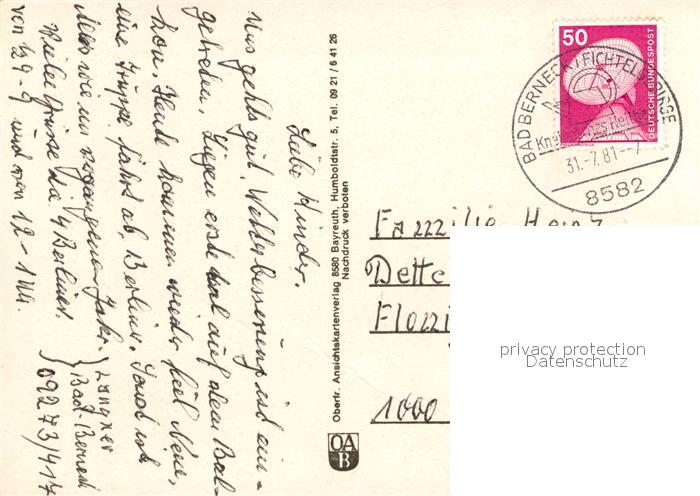 Liebe Kinder.
Uns gehts gut, Wetterbesserung ist ein-
getreten. Liegen erste mal auf dem Bal-
kon. Heute kommen wieder fiel Neue,
eine Truppe fährt ab, Berliner. Sonst ist
alles wie im vergangenem Jahr.
Viele Grüsse die 4 Berliner.
von ½9 - 9 und von 12 - 1 Uhr.
Langner
Bad-Berneck
09273/417
Oberfr. Ansichtskartenverlag 8580 Bayreuth, Humboldtstr. 5, Tel. 09 21 / 6 41 26
Nachdruck verboten
OA
B
50
DEUTSCHE BUNDESPOST
BAD BERNECK / FICHTELGEBIRGE
31.-7.81--7
8582
Familie Heinz
Dette
Florri
1000
privacy protection
Datenschutz